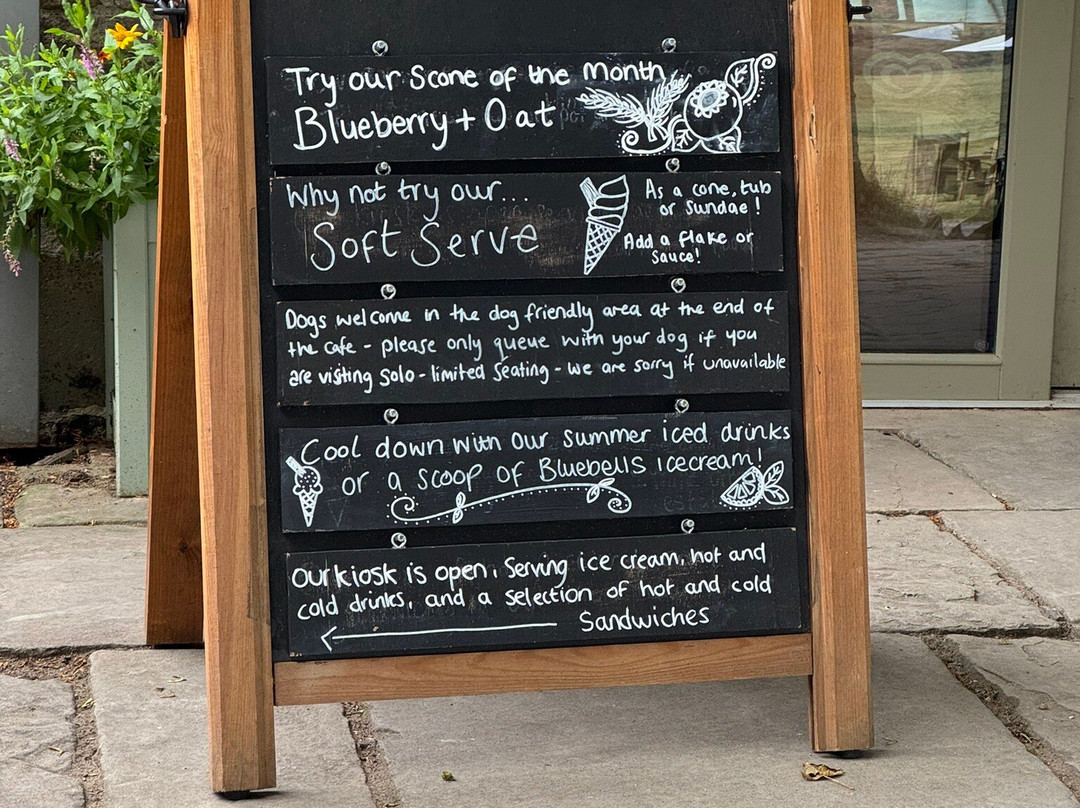 Try our Scone of the Month
Blueberry + Oat
Why not try our...
Soft Serve
As a cone, tub
or Sundae!
Add a flake or
Sauce!
Dogs welcome in the dog friendly area at the end of
the cafe - please only queue with your dog if you
are visiting solo - limited seating - we are sorry if unavailable
Cool down with our summer iced drinks
or a scoop of Bluebells icecream!
Our kiosk is open, Serving ice cream, hot and
cold drinks, and a selection of hot and cold
Sandwiches